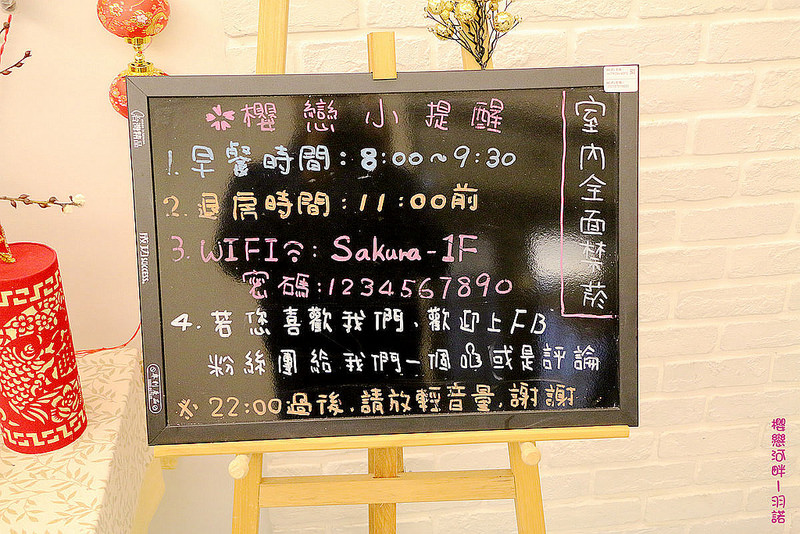 ✽櫻戀小提醒
1.早餐時間:8:00~9:30
2.退房時間:11:00前
3.WIFI:Sakura-1F
密碼:1234567890
4.若您喜歡我們、歡迎上FB
粉絲團給我們一個👍或是評論
※22:00過後,請放輕音量,謝謝
室內全面禁菸
SUCCESS
櫻戀河畔一羽諾